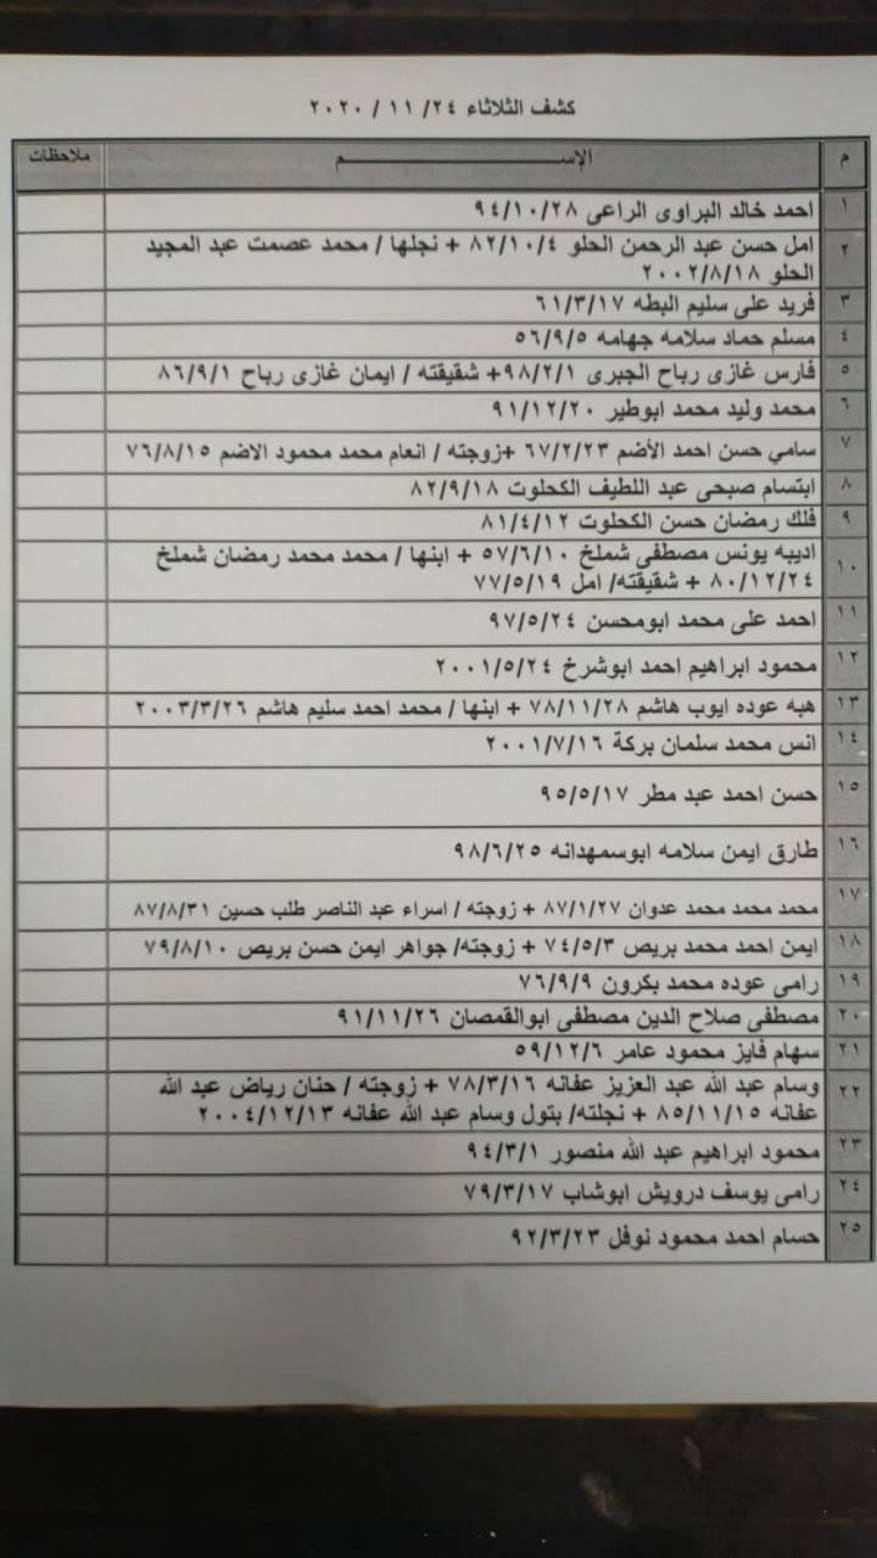 كشف الثلاثاء ٢٤/ ١١ / ٢٠٢٠
م الإســـــــم ملاحظات
١ احمد خالد البراوى الراعى ٩٤/١٠/٢٨
٢ امل حسن عبد الرحمن الحلو ٨٢/١٠/٤ + نجلها / محمد عصمت عبد المجيد
الحلو ٢٠٠٢/٨/١٨
٣ فريد على سليم البطه ٦١/٣/١٧
٤ مسلم حماد سلامه جهامه ٥٦/٩/٥
٥ فارس غازى رباح الجبرى ٩٨/٢/١+ شقيقته / ايمان غازى رباح ٨٦/٩/١
٦ محمد وليد محمد ابوطير ٩١/١٢/٢٠
٧ سامي حسن احمد الأضم ٦٧/٢/٢٣ +زوجته / انعام محمد محمود الاضم ٧٦/٨/١٥
٨ ابتسام صبحى عبد اللطيف الكحلوت ٨٢/٩/١٨
٩ فلك رمضان حسن الكحلوت ٨١/٤/١٢
١٠ اديبه يونس مصطفى شملخ ٥٧/٦/١٠ + ابنها / محمد محمد رمضان شملخ
٨٠/١٢/٢٤ + شقيقته/ امل ٧٧/٥/١٩
١١ احمد على محمد ابومحسن ٩٧/٥/٢٤
١٢ محمود ابراهيم احمد ابوشرخ ٢٠٠١/٥/٢٤
١٣ هبه عوده ايوب هاشم ٧٨/١١/٢٨ + ابنها / محمد احمد سليم هاشم ٢٠٠٣/٣/٢٦
١٤ انس محمد سلمان بركة ٢٠٠١/٧/١٦
١٥ حسن احمد عبد مطر ٩٥/٥/١٧
١٦ طارق ايمن سلامه ابوسمهدانه ٩٨/٦/٢٥
١٧ محمد محمد محمد عدوان ٨٧/١/٢٧ + زوجته / اسراء عبد الناصر طلب حسين ٨٧/٨/٣١
١٨ ايمن احمد محمد بريص ٧٤/٥/٣ + زوجته/ جواهر ايمن حسن بريص ٧٩/٨/١٠
١٩ رامى عوده محمد بكرون ٧٦/٩/٩
٢٠ مصطفى صلاح الدين مصطفى ابوالقمصان ٩١/١١/٢٦
٢١ سهام فايز محمود عامر ٥٩/١٢/٦
٢٢ وسام عبد الله عبد العزيز عفانه ٧٨/٣/١٦ + زوجته / حنان رياض عبد الله
عفانه ٨٥/١١/١٥ + نجلته/ بتول وسام عبد الله عفانه ٢٠٠٤/١٢/١٣
٢٣ محمود ابراهيم عبد الله منصور ٩٤/٣/١
٢٤ رامى يوسف درويش ابوشاب ٧٩/٣/١٧
٢٥ حسام احمد محمود نوفل ٩٢/٣/٢٣